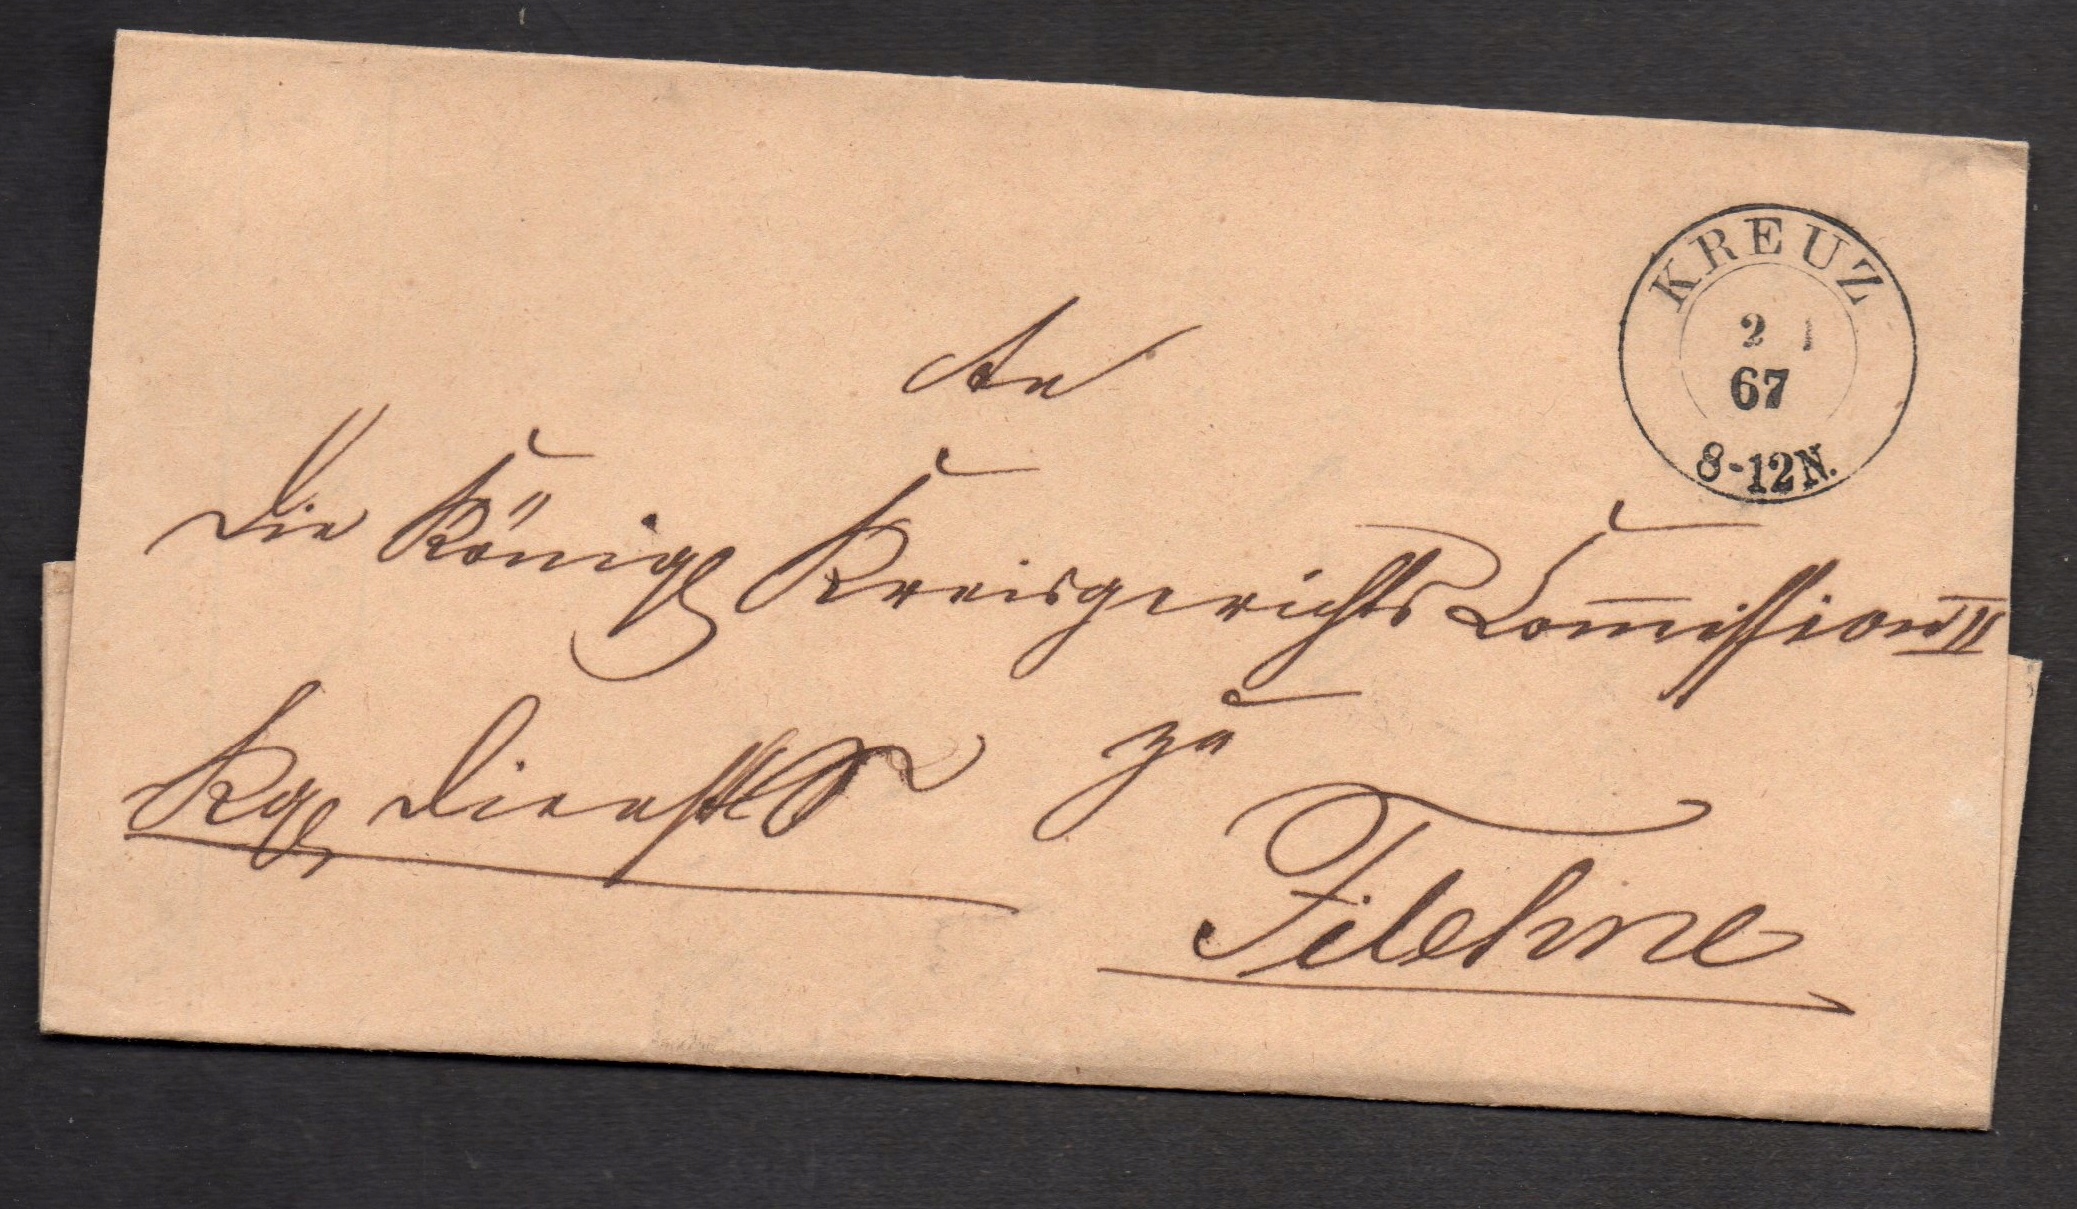 KREUZ
2 1
67
8-12N.
An
die Königl Kreisgerichts Commission II
zu
Kgl Dienst
Filehne